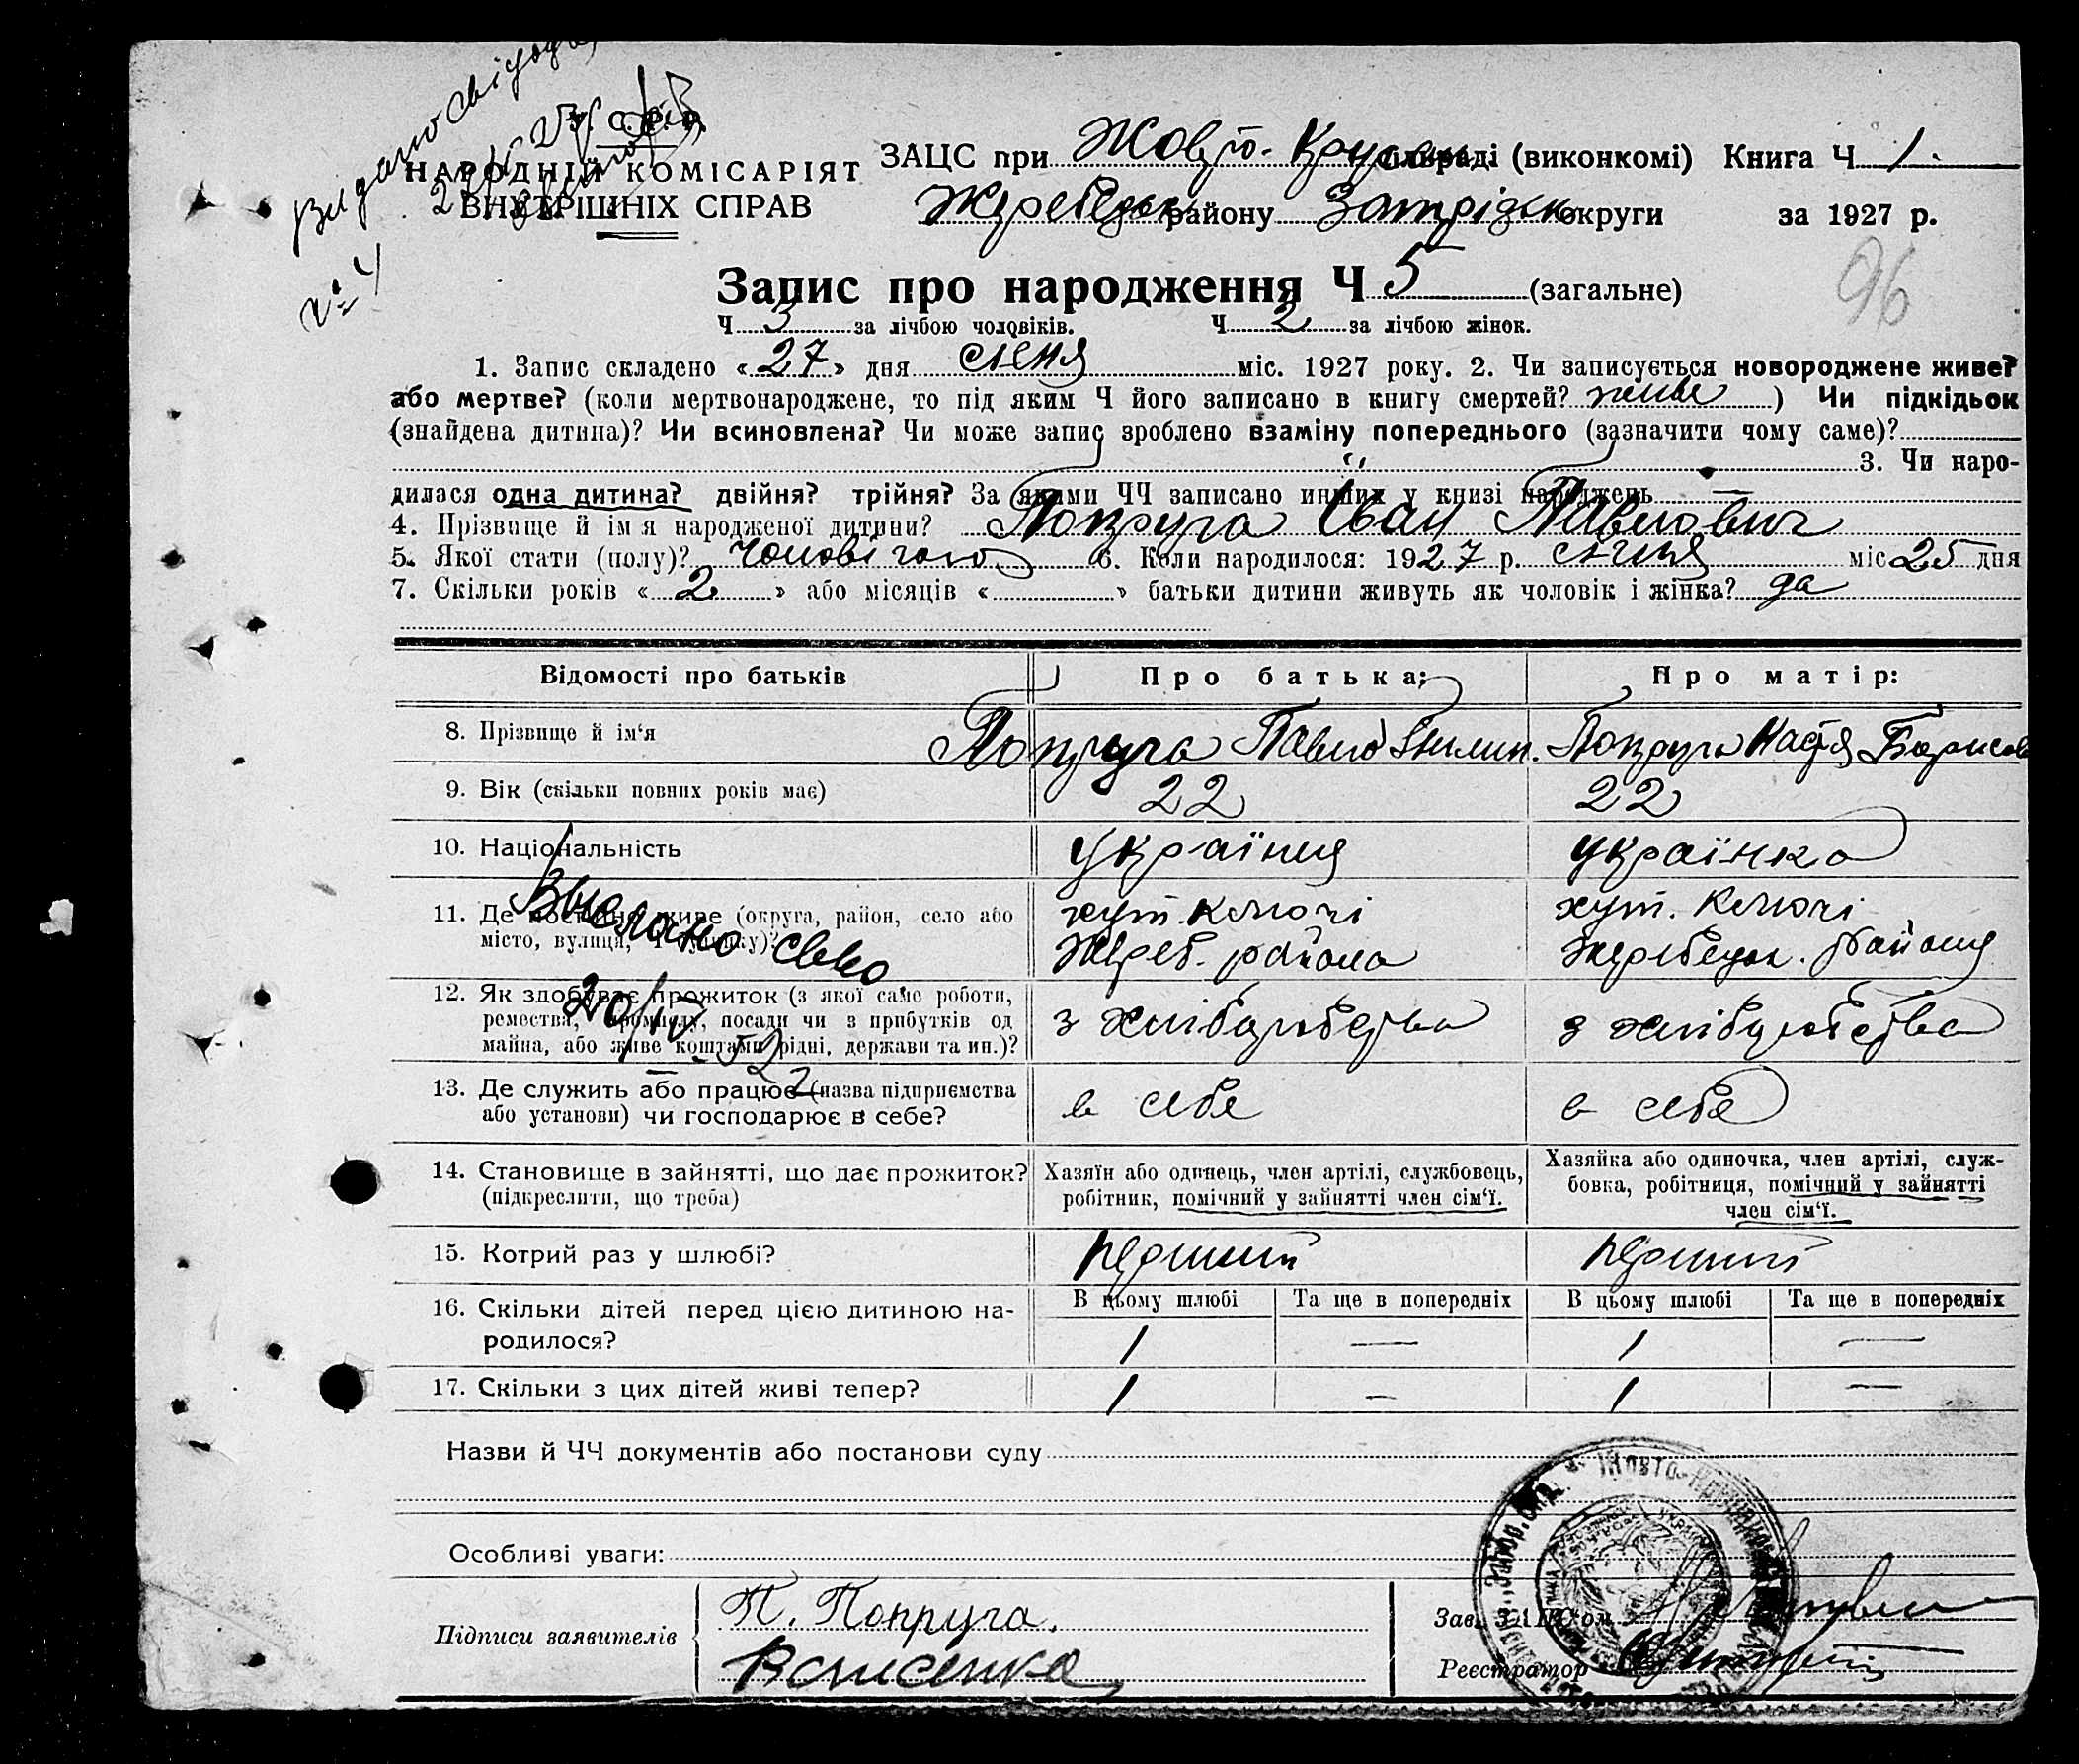 Видано свідоц
У. С. Р. Р.
НАРОДНІЙ КОМІСАРІЯТ
ВНУТРІШНІХ СПРАВ
ЗАЦС при Жовто-Круч. сільраді (виконкомі) Книга Ч 1.
Жеребецьк району Запорізьк округи за 1927 р.
96
Запис про народження Ч 5 (загальне)
Ч 3 за лічбою чоловіків. Ч 2 за лічбою жінок.
1. Запис складено «27» дня січня міс. 1927 року. 2. Чи записується новороджене живе?
або мертве? (коли мертвонароджене, то під яким Ч його записано в книгу смертей? живе) Чи підкідьок
(знайдена дитина)? Чи всиновлена? Чи може запис зроблено взаміну попереднього (зазначити чому саме)?
3. Чи наро-
дилася одна дитина? двійня? трійня? За якими ЧЧ записано инших у книзі народжень —
4. Прізвище й імя народженої дитини? Попруга Іван Павлович
5. Якої стати (полу)? чоловічого 6. Коли народилося: 1927 р. січня міс 25 дня
7. Скільки років «2» або місяців « » батьки дитини живуть як чоловік і жінка? да
Відомості про батьків Про батька: Про матір:
8. Прізвище й ім'я Попруга Павло Попруга Настя Борисов
9. Вік (скільки повних років має) 22 22
10. Національність українця українка
11. Де постійно живе (округа, район, село або хут. Ключі хут. Ключі
місто, вулиця, будинку)? Жереб. района Жеребецьк. району
Выслано св-во
20/IV-52
12. Як здобуває прожиток (з якої саме роботи,
ремества, промислу, посади чи з прибутків од з хліборобства з хліборобства
майна, або живе коштами рідні, держави та ин.)?
13. Де служить або працює (назва підприємства
або установи) чи господарює в себе? в себе в себе
14. Становище в зайнятті, що дає прожиток? Хазяїн або одинець, член артілі, службовець, Хазяйка або одиночка, член артілі, служ-
(підкреслити, що треба) робітник, помічний у зайнятті член сім'ї. бовка, робітниця, помічний у зайнятті
член сім'ї.
15. Котрий раз у шлюбі? перший перший
16. Скільки дітей перед цією дитиною на- В цьому шлюбі Та ще в попередніх В цьому шлюбі Та ще в попередніх
родилося? 1 — 1 —
17. Скільки з цих дітей живі тепер? 1 — 1 —
Назви й ЧЧ документів або постанови суду
Особливі уваги:
Підписи заявителів П. Попруга.
Зав. ЗАЦС'ом
Реєстратор